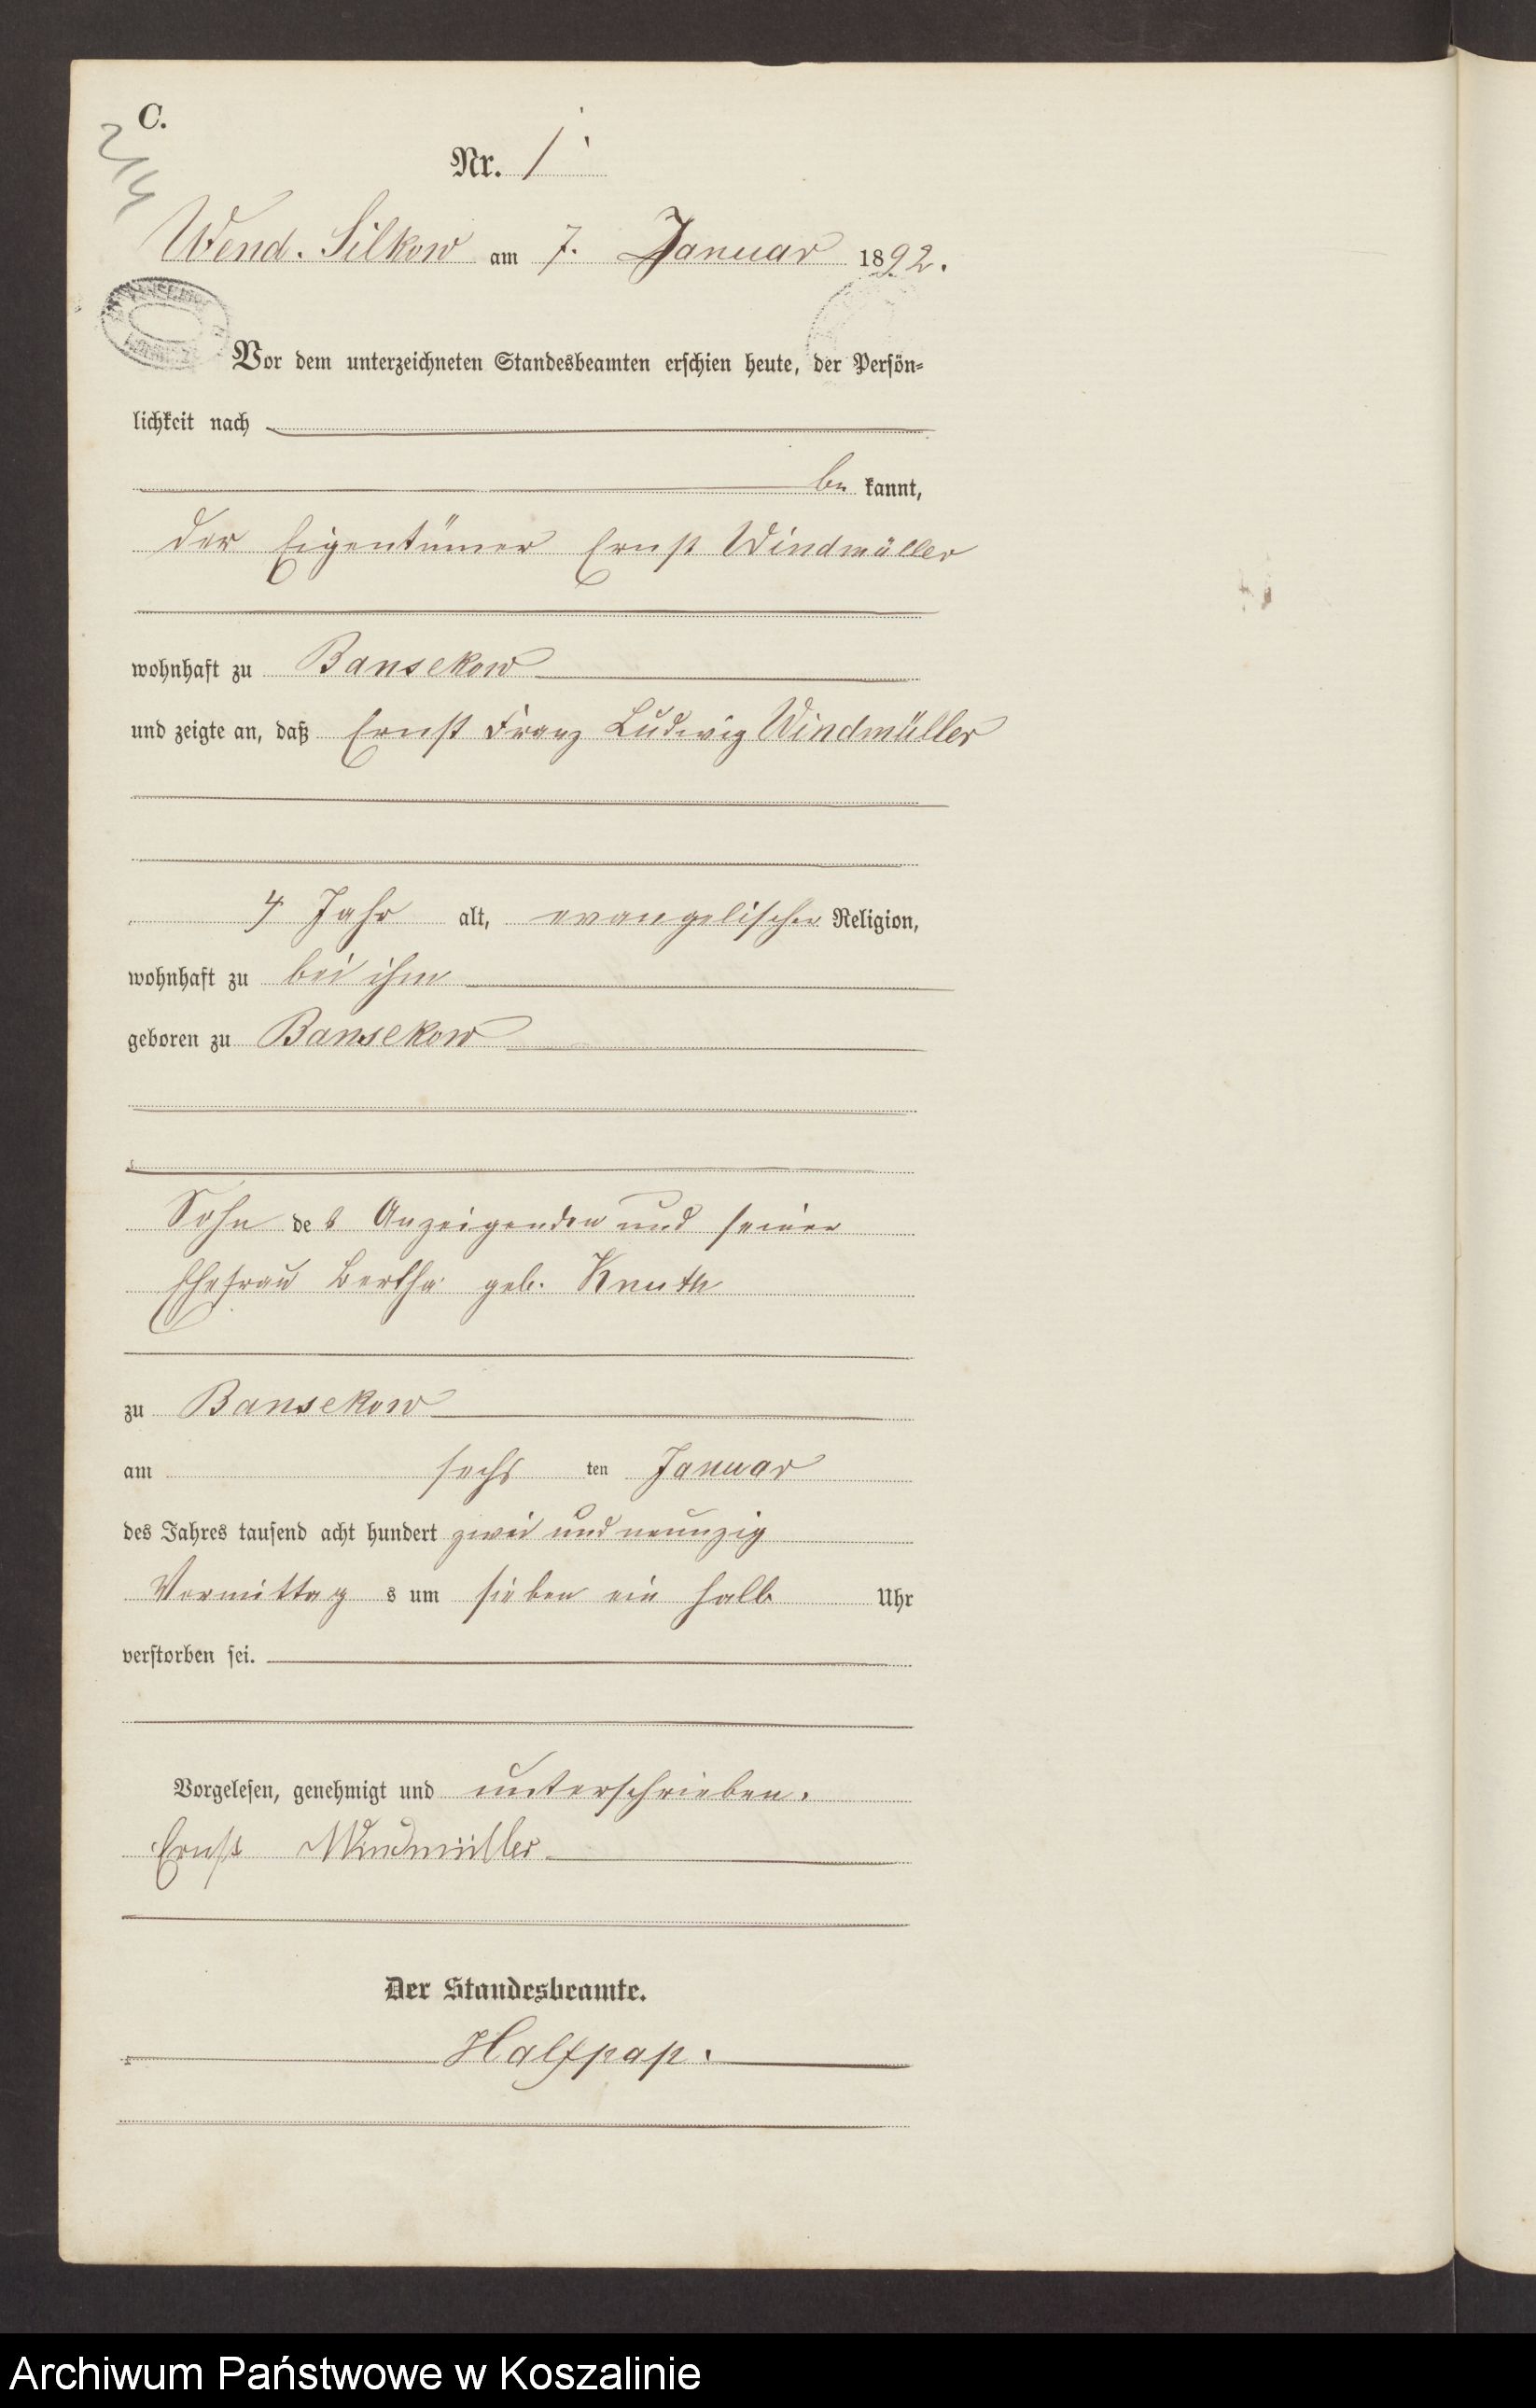 C.
Nr. 1
Wend. Silkow am 7. Januar 1892.
Vor dem unterzeichneten Standesbeamten erschien heute, der Persön-
lichkeit nach
be kannt,
der Eigentümer Ernst Windmüller
wohnhaft zu Bansekow
und zeigte an, daß Ernst Franz Ludwig Windmüller
4 Jahr alt, evangelischer Religion,
wohnhaft zu bei ihm
geboren zu Bansekow
Sohn des Anzeigenden und seiner
Ehefrau Bertha geb. Knuth
zu Bansekow
am sechs ten Januar
des Jahres tausend acht hundert zwei und neunzig
Vormittag s um sieben ein halb Uhr
verstorben sei.
Vorgelesen, genehmigt und unterschrieben.
Ernst Windmüller
Der Standesbeamte.
Halfpap.
Archiwum Państwowe w Koszalinie